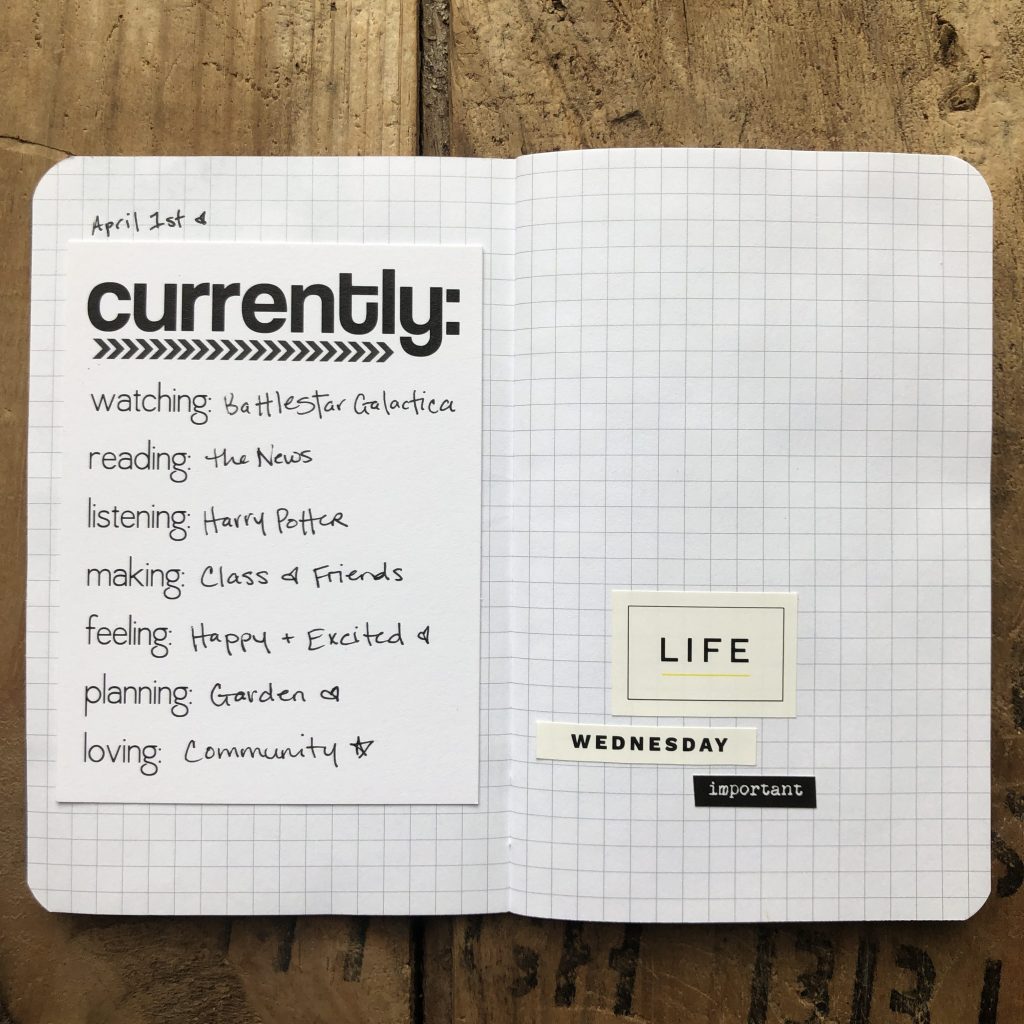 April 1st
currently:
watching: Battlestar Galactica
reading: the News
listening: Harry Potter
making: Class & Friends
feeling: Happy + Excited
planning: Garden
loving: Community
LIFE
WEDNESDAY
important